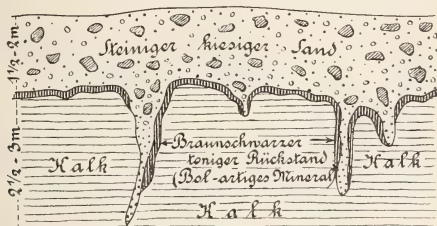 1½-2m
Steiniger kiesiger Sand
2½-3m
Braunschwarzer
toniger Rückstand
(Bol-artiges Mineral)
Kalk
Kalk
Kalk